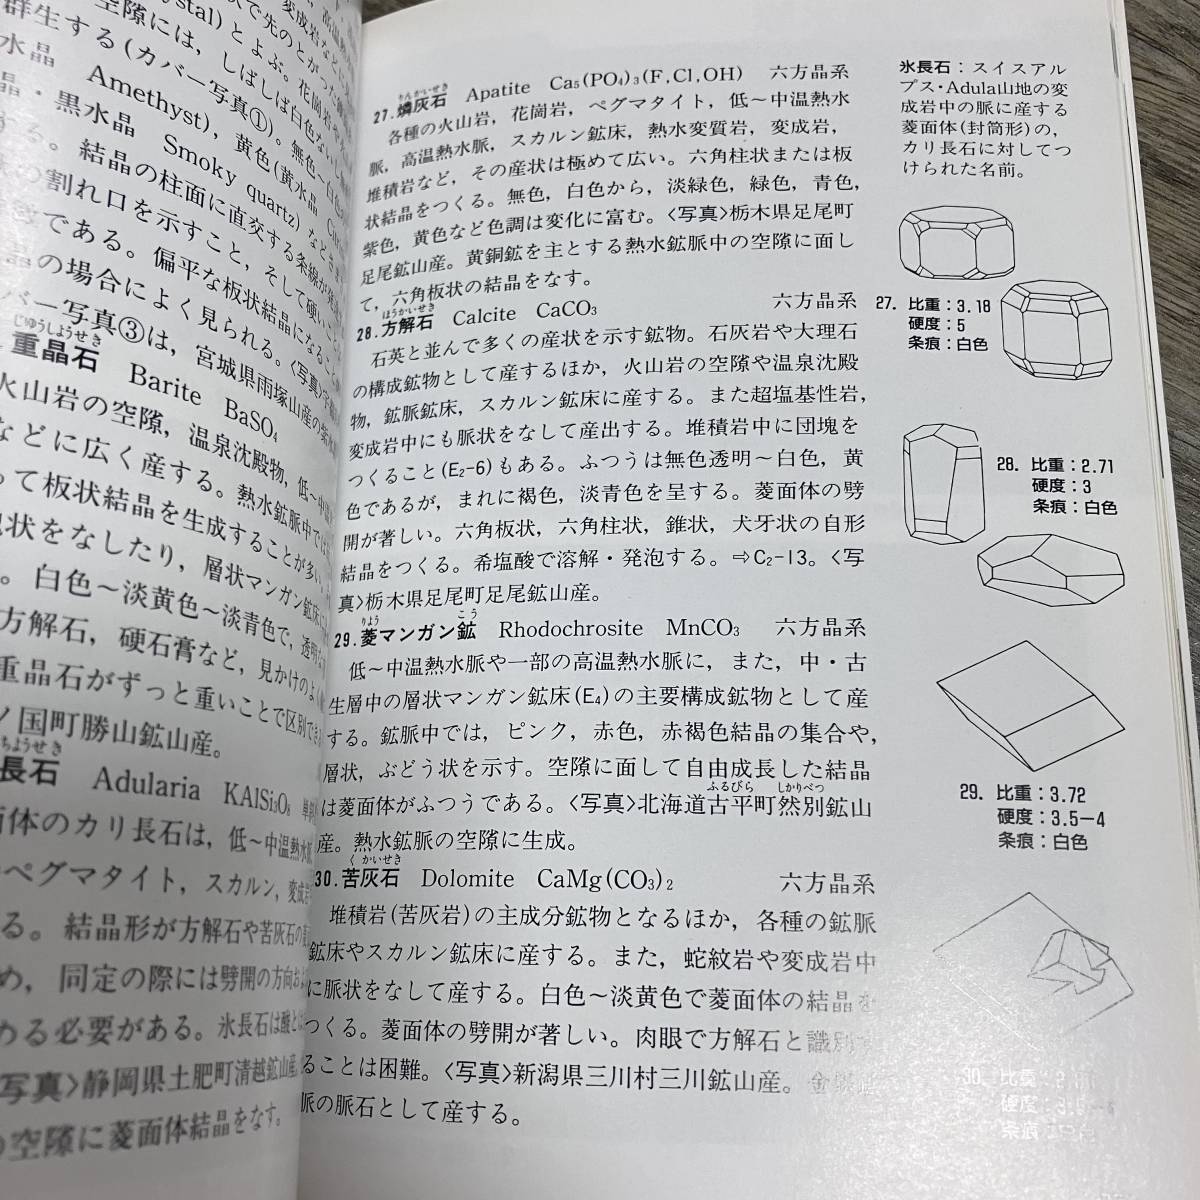 27.燐灰石 Apatite Ca₅(PO₄)₃(F,Cl,OH) 六方晶系
りんかいせき
各種の火山岩，花崗岩，ペグマタイト，低〜中温熱水
脈，高温熱水脈，スカルン鉱床，熱水変質岩，変成岩，
堆積岩など，その産状は極めて広い。六角柱状または板
状結晶をつくる。無色，白色から，淡緑色，緑色，青色，
紫色，黄色など色調は変化に富む。〈写真〉栃木県足尾町
足尾鉱山産。黄銅鉱を主とする熱水鉱脈中の空隙に面し
て，六角板状の結晶をなす。
ほうかいせき
28.方解石 Calcite CaCO₃ 六方晶系
石英と並んで多くの産状を示す鉱物。石灰岩や大理石
の構成鉱物として産するほか，火山岩の空隙や温泉沈殿
物，鉱脈鉱床，スカルン鉱床に産する。また超塩基性岩，
変成岩中にも脈状をなして産出する。堆積岩中に団塊を
つくること(E₂−6)もある。ふつうは無色透明〜白色，黄
色であるが，まれに褐色，淡青色を呈する。菱面体の劈
開が著しい。六角板状，六角柱状，錐状，犬牙状の自形
結晶をつくる。希塩酸で溶解・発泡する。⇨C₂−13。〈写
真〉栃木県足尾町足尾鉱山産。
りよう こう
29.菱マンガン鉱 Rhodochrosite MnCO₃ 六方晶系
低〜中温熱水脈や一部の高温熱水脈に，また，中・古
生層中の層状マンガン鉱床(E₄)の主要構成鉱物として産
する。鉱脈中では，ピンク，赤色，赤褐色結晶の集合や，
層状，ぶどう状を示す。空隙に面して自由成長した結晶
は菱面体がふつうである。〈写真〉北海道古平町然別鉱山
ふるびら しかりべつ
産。熱水鉱脈の空隙に生成。
く かいせき
30.苦灰石 Dolomite CaMg(CO₃)₂ 六方晶系
堆積岩(苦灰岩)の主成分鉱物となるほか，各種の鉱脈
鉱床やスカルン鉱床に産する。また，蛇紋岩や変成岩中
に脈状をなして産する。白色〜淡黄色で菱面体の結晶を
つくる。菱面体の劈開が著しい。肉眼で方解石と識別す
ることは困難。〈写真〉新潟県三川村三川鉱山産。
脈の脈石として産する。
氷長石：スイスアル
プス・Adula山地の変
成岩中の脈に産する
菱面体(封筒形)の，
カリ長石に対してつ
けられた名前。
27. 比重：3.18
硬度：5
条痕：白色
28. 比重：2.71
硬度：3
条痕：白色
29. 比重：3.72
硬度：3.5−4
条痕：白色
30. 比重：
硬度：
条痕：白色
群生する(カバー写真①)。無色
水晶 Amethyst)，黄色(黄水晶
晶・黒水晶 Smoky quartz)など
る。結晶の柱面に直交する条線が
の割れ口を示すこと，そして硬いこ
である。偏平な板状結晶になること
の場合によく見られる。〈写真〉
バー写真③は，宮城県雨塚山産の
じゆうしようせき
重晶石 Barite BaSO₄
火山岩の空隙，温泉沈殿物，低〜中
などに広く産する。熱水鉱脈中では
って板状結晶を生成することが多い
状をなしたり，層状マンガン鉱床に
。白色〜淡黄色〜淡青色で，透明
方解石，硬石膏など，見かけのよ
重晶石がずっと重いことで区別でき
ノ国町勝山鉱山産。
ちようせき
長石 Adularia KAlSi₃O₈
面体のカリ長石は，低〜中温熱水
ペグマタイト，スカルン，変成
る。結晶形が方解石や苦灰石の
め，同定の際には劈開の方向およ
める必要がある。氷長石は酸と
写真〉静岡県土肥町清越鉱山産。
の空隙に菱面体結晶をなす。